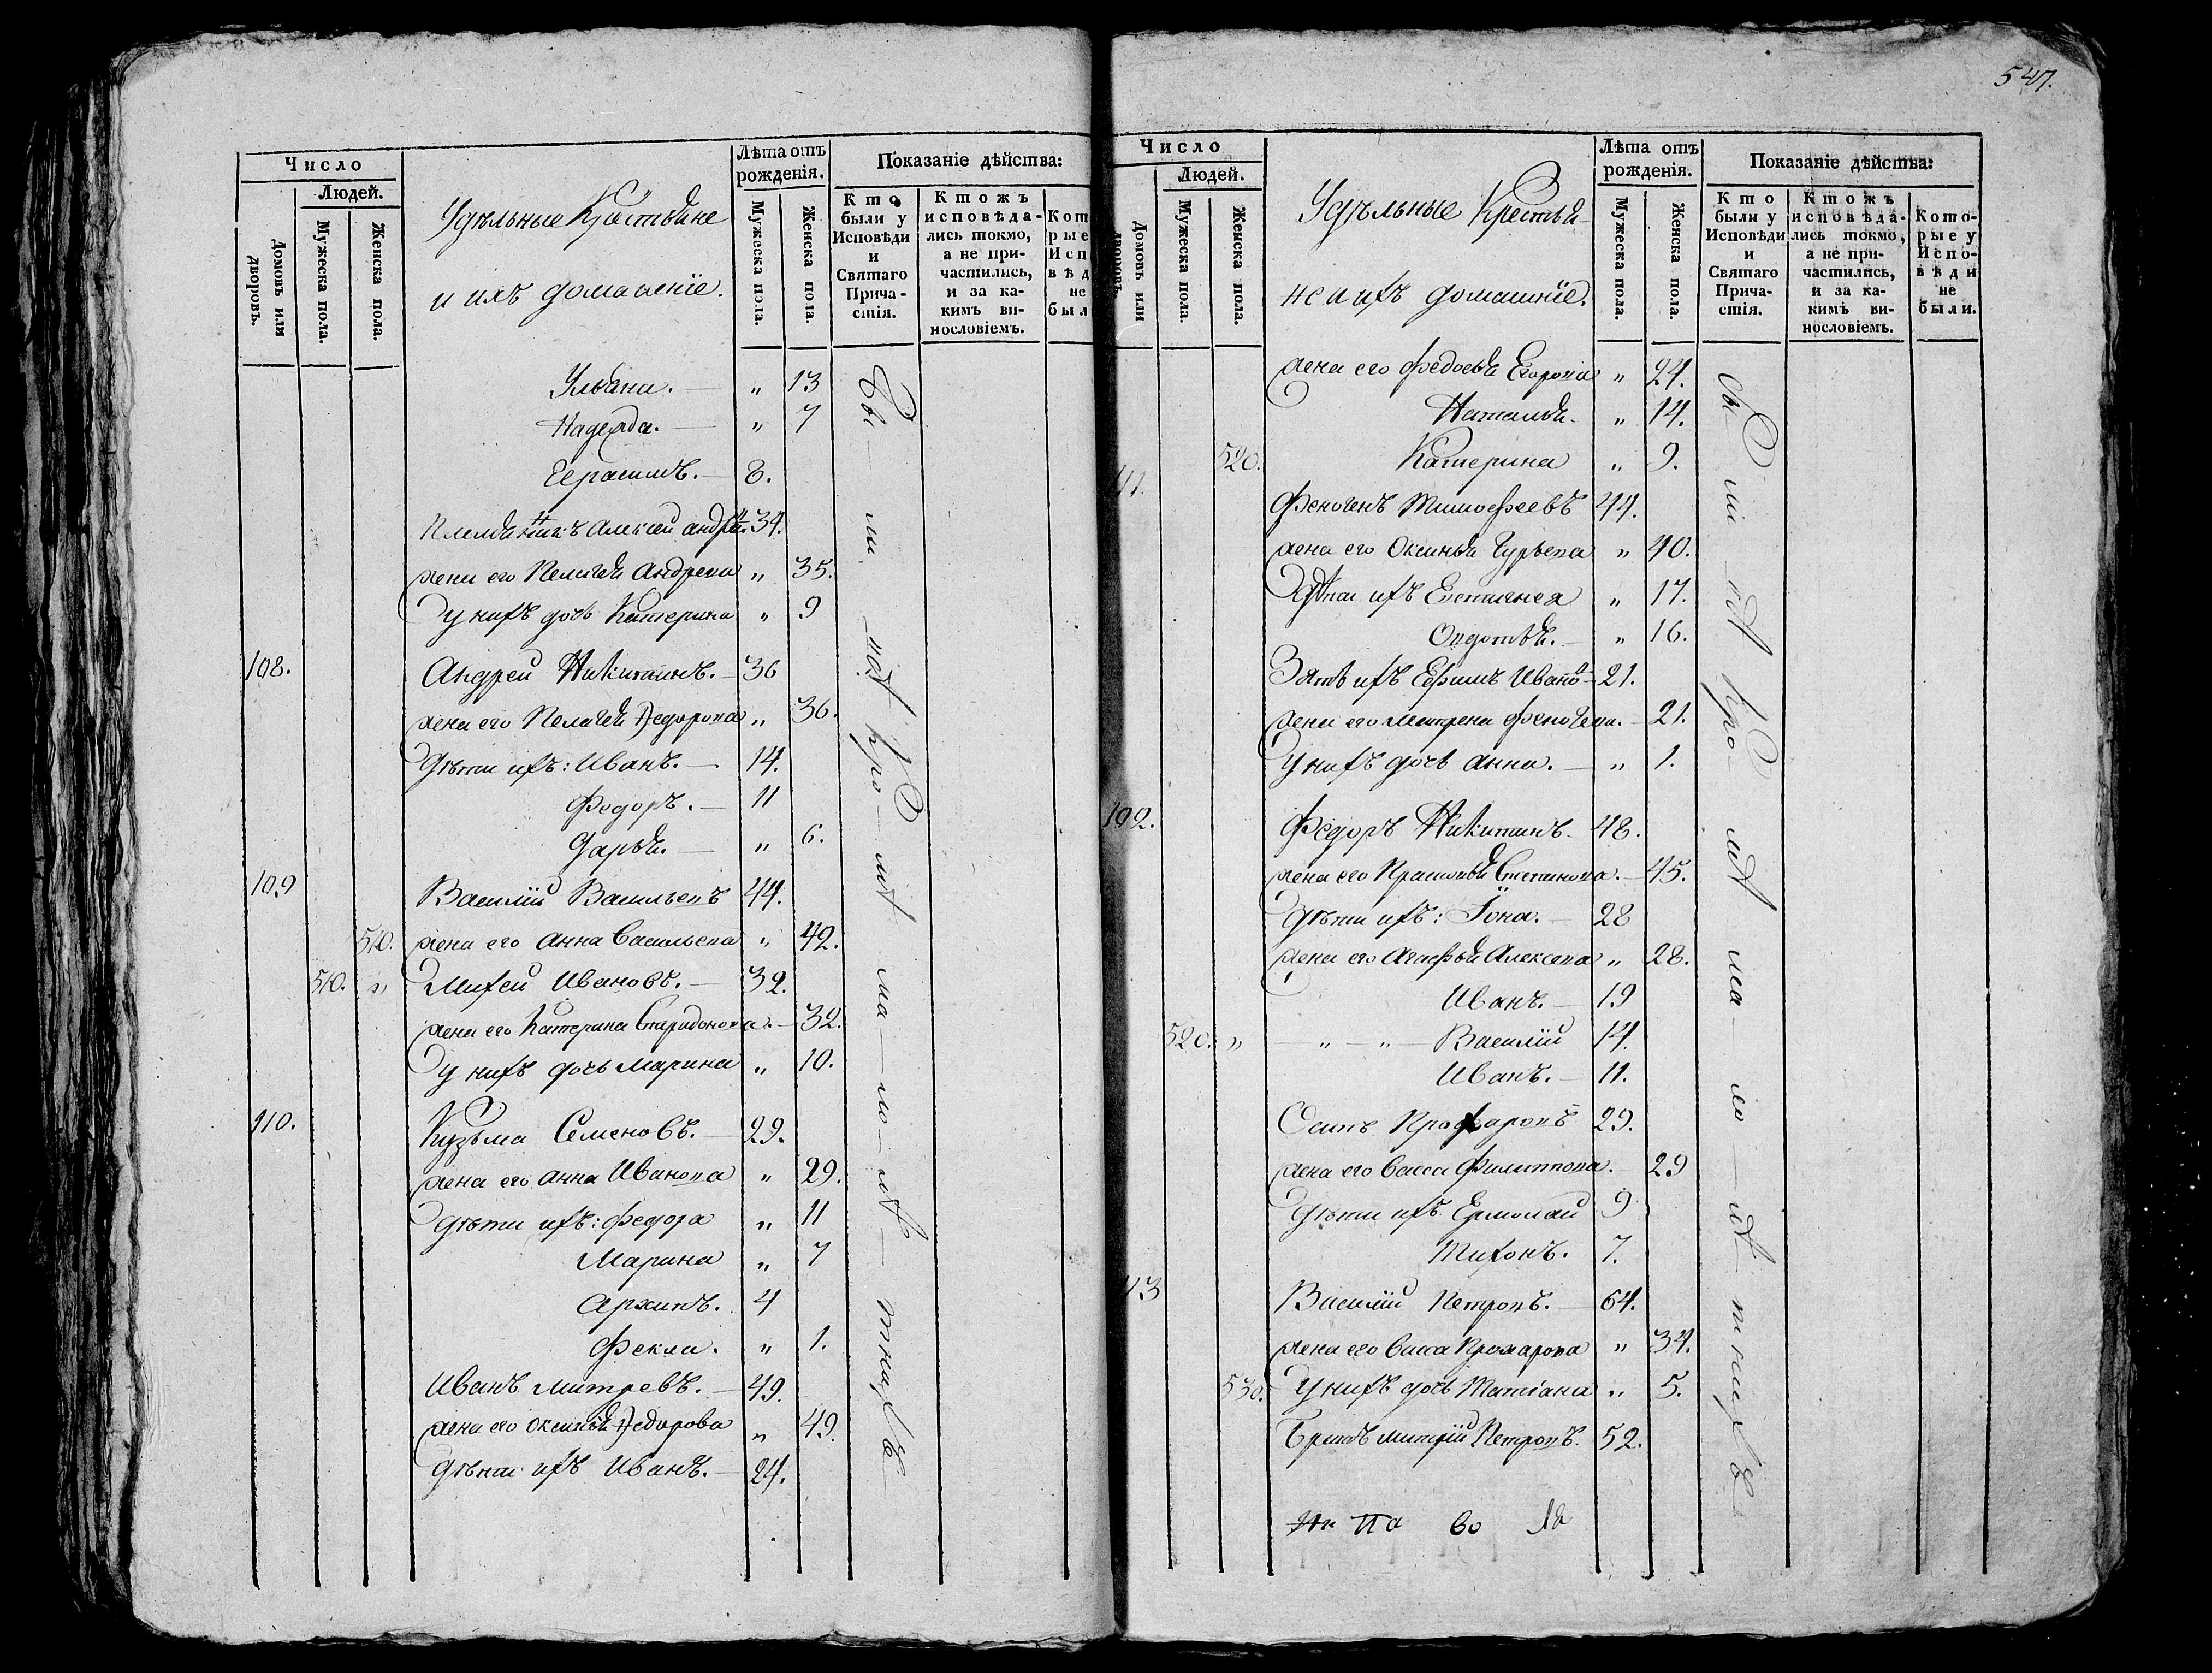 Число
Людей.
Домовъ или дворовъ.
Мужеска пола.
Женска пола.
Удѣльные Крестьяне
и ихъ домашніе.
Лѣта отъ рожденія.
Мужеска пола.
Женска пола.
Показаніе дѣйства:
Кто были у Исповѣди и Святаго Причастія.
Ктожъ исповѣдались токмо, а не причастились, и за какимъ винословіемъ.
Кот
рые
Исп
вѣд
не
был
Ульяна. — „ 13
Надежда. — „ 7
Герасимъ. — 8.
Племянникъ Алексей Андре. 34.
жена его Пелагея Андрева „ 35.
у нихъ дочь Катерина „ 9
108. Андрей Никитинъ. — 36
жена его Пелагея Федорова „ 36.
Дѣти ихъ: Иванъ. — 14.
Федоръ. — 11
Дарья. — „ 6.
109 Василій Васильевъ 44.
510. жена его Анна Васильева „ 42.
510. „ Михей Ивановъ. — 32.
жена его Катерина Спиридонова. — 32.
у нихъ дочь Марина „ 10.
110. Кузьма Семеновъ. — 29.
жена его Анна Иванова „ 29.
Дѣти ихъ: Федора „ 11
Марина „ 7
Архипъ. 4
Фекла. „ 1.
Иванъ Митревъ. — 49.
жена его Оксинья Федорова „ 49.
Дѣти ихъ Иванъ. — 24.
547.
Число
Людей.
Домовъ или дворовъ.
Мужеска пола.
Женска пола.
Удѣльные Крестья-
не и ихъ домашніе.
Лѣта отъ рожденія.
Мужеска пола.
Женска пола.
Показаніе дѣйства:
Кто были у Исповѣди и Святаго Причастія.
Ктожъ исповѣдались токмо, а не причастились, и за какимъ винословіемъ.
Которые у Исповѣди не были.
жена его Федосья Егорова „ 24.
Наталья. „ 14.
520. Катерина „ 9.
Феногенъ Тимофеевъ 44.
жена его Оксинья Гурьева „ 40.
Дѣти ихъ Евгенея „ 17.
Овдотья. — „ 16.
Зять ихъ Ефимъ Ивано — 21.
жена его Матрена Феногена. — 21.
у нихъ дочь Анна. — „ 1.
Федоръ Никитинъ. 48.
жена его Прасковья Степанова. — 45.
Дѣти ихъ: Іона. — 28
жена его Агафья Алексева „ 28.
Иванъ. — 19
520. „ — „ — „ — Василій 14.
Иванъ. — 11.
Осипъ 29.
жена его Васса Филиппова. — 29
Дѣти ихъ Ермолай 9
Тихонъ. 7.
Василій Петровъ. — 64.
жена его Васса „ 34.
530. у нихъ дочь Татіана „ 5.
Братъ Митрій Петровъ. 52.